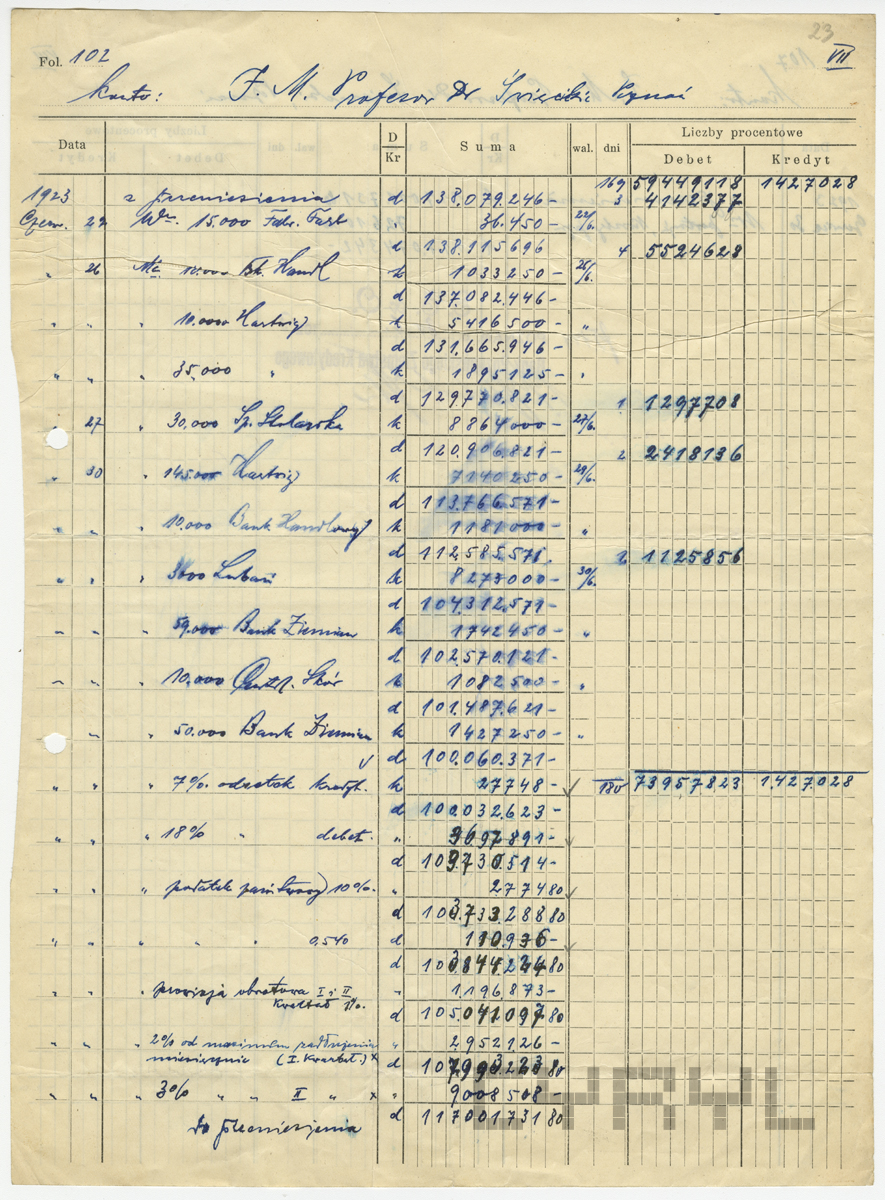 23
Fol. 102 VII
Konto: F. M. Profesor Dr Święcicki Poznań
Data D Kr Suma wal. dni Liczby procentowe
Debet Kredyt
169 59449118 1427028
1923 z przeniesienia d 138.079.246- 3 4142377
Czerw. 22 Wa. 15.000 36.450- 22/6.
d 138.115696 4 5524628
" 26 10.000 Bk. Handl k 1033250- 26/6.
d 137.082.446-
" " " 10.000 Hartwig k 5416500- "
d 131.665.946-
" " " 35.000 " k 1895125- "
d 129.770.821- 1 1297708
" 27 " 30.000 Sp. Stolarska k 8864000- 27/6.
d 120.906.821- 2 2418136
" 30 " 145.000 Hartwig k 7140250- 29/6.
d 113.766.571-
" " " 10.000 Bank Handlowy k 1181000- "
d 112.585.571. 1125856
" " " Lubań k 8273000- 30/6.
d 104.312.571-
" " " 59.000 Bank Ziemian k 1742450- "
d 102.570.121-
" " " 10.000 Skór k 1082500- "
d 101.487.621-
" " 50.000 Bank Ziemian k 1427250- "
d 100.060.371-
" " " 7% odsetek kredyt. k 27748- 180 73957823 1.427.028
d 100.032.623-
" " " 18% " debet. " 3697891-
d 103.730.514-
" " " podatek państwowy 10%. " 277480
d 103.733.28880
" " " " " 0,5% d 110.936-
d 103.844.22480
" " " prowizja obrotowa I i II " 1.196.873-
kwartał 1%.
d 105.041.09780
" " " 2% od maximum zadłużenia " 2952126-
miesięcznie (I. Kwartał.) x d 107.993.22380
" " " 3% " " II " x " 9008508-
d 11700173180
Do przeniesienia